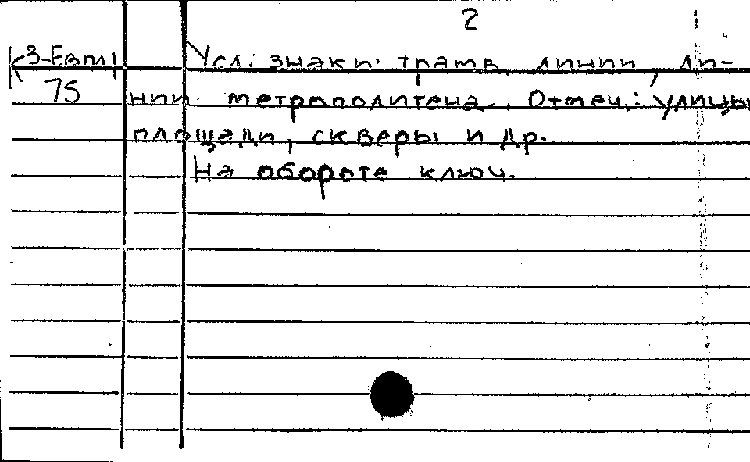 2
К3-Евт1 Усл. знаки: трамв. линии, ли-
75 нии метрополитена. Отмеч.: улицы
площади, скверы и др.
На обороте ключ.